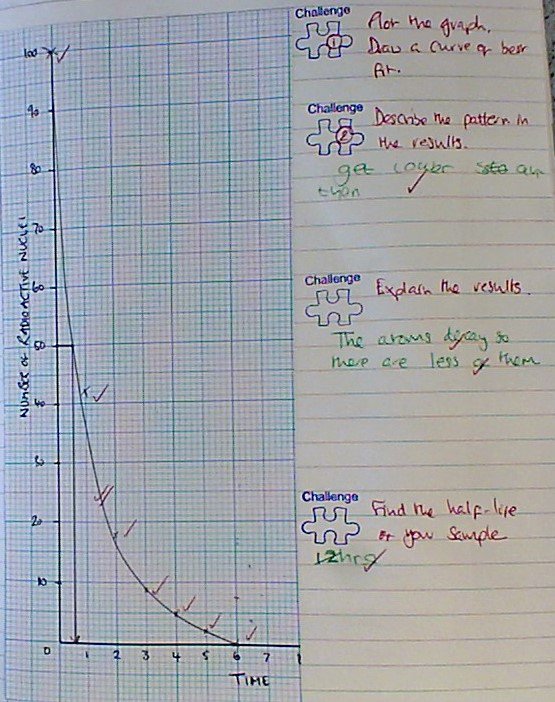 Challenge
1
Plot the graph.
Draw a curve of best
fit.
Challenge
2
Describe the pattern in
the results.
get lower
than
Challenge
Explain the results.
The atoms decay so
there are less of them
Challenge
Find the half-life
of your sample
12hrs
NUMBER OF RADIOACTIVE NUCLEI
100
90
80
70
60
50
40
30
20
10
0 1 2 3 4 5 6 7
TIME